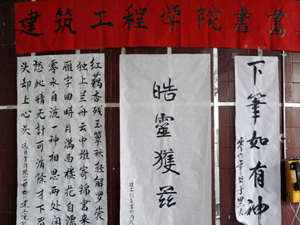 建筑工程学院書
红藕香残玉簟秋轻解罗裳
独上兰舟云中谁寄锦書来
雁字回時月满西楼花自漂
零水自流一种相思两处闲
愁此情无计可消除才下眉
头却上心头
皓靈獲兹
下筆如有神